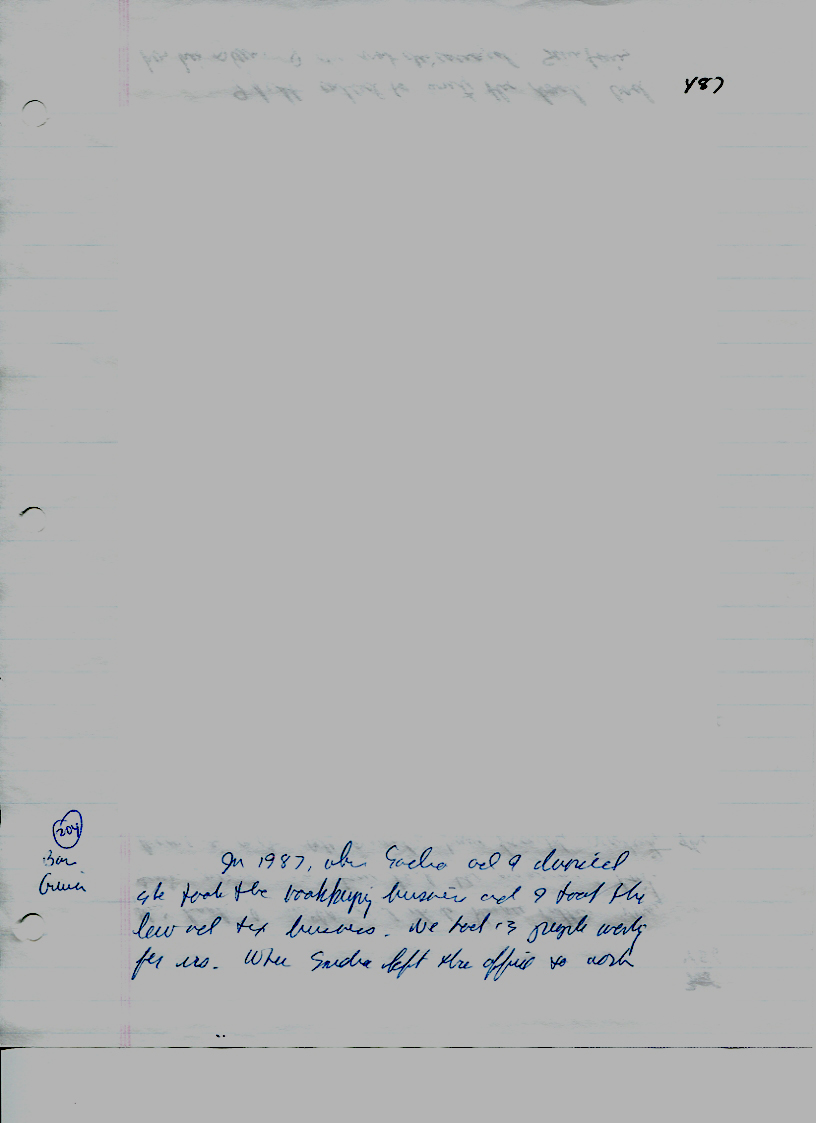 487
204
In 1987, when Sandra and I divorced
she took the bookkeeping business and I took the
law and tax business. We had 13 people working
for us. When Sandra left the office to work